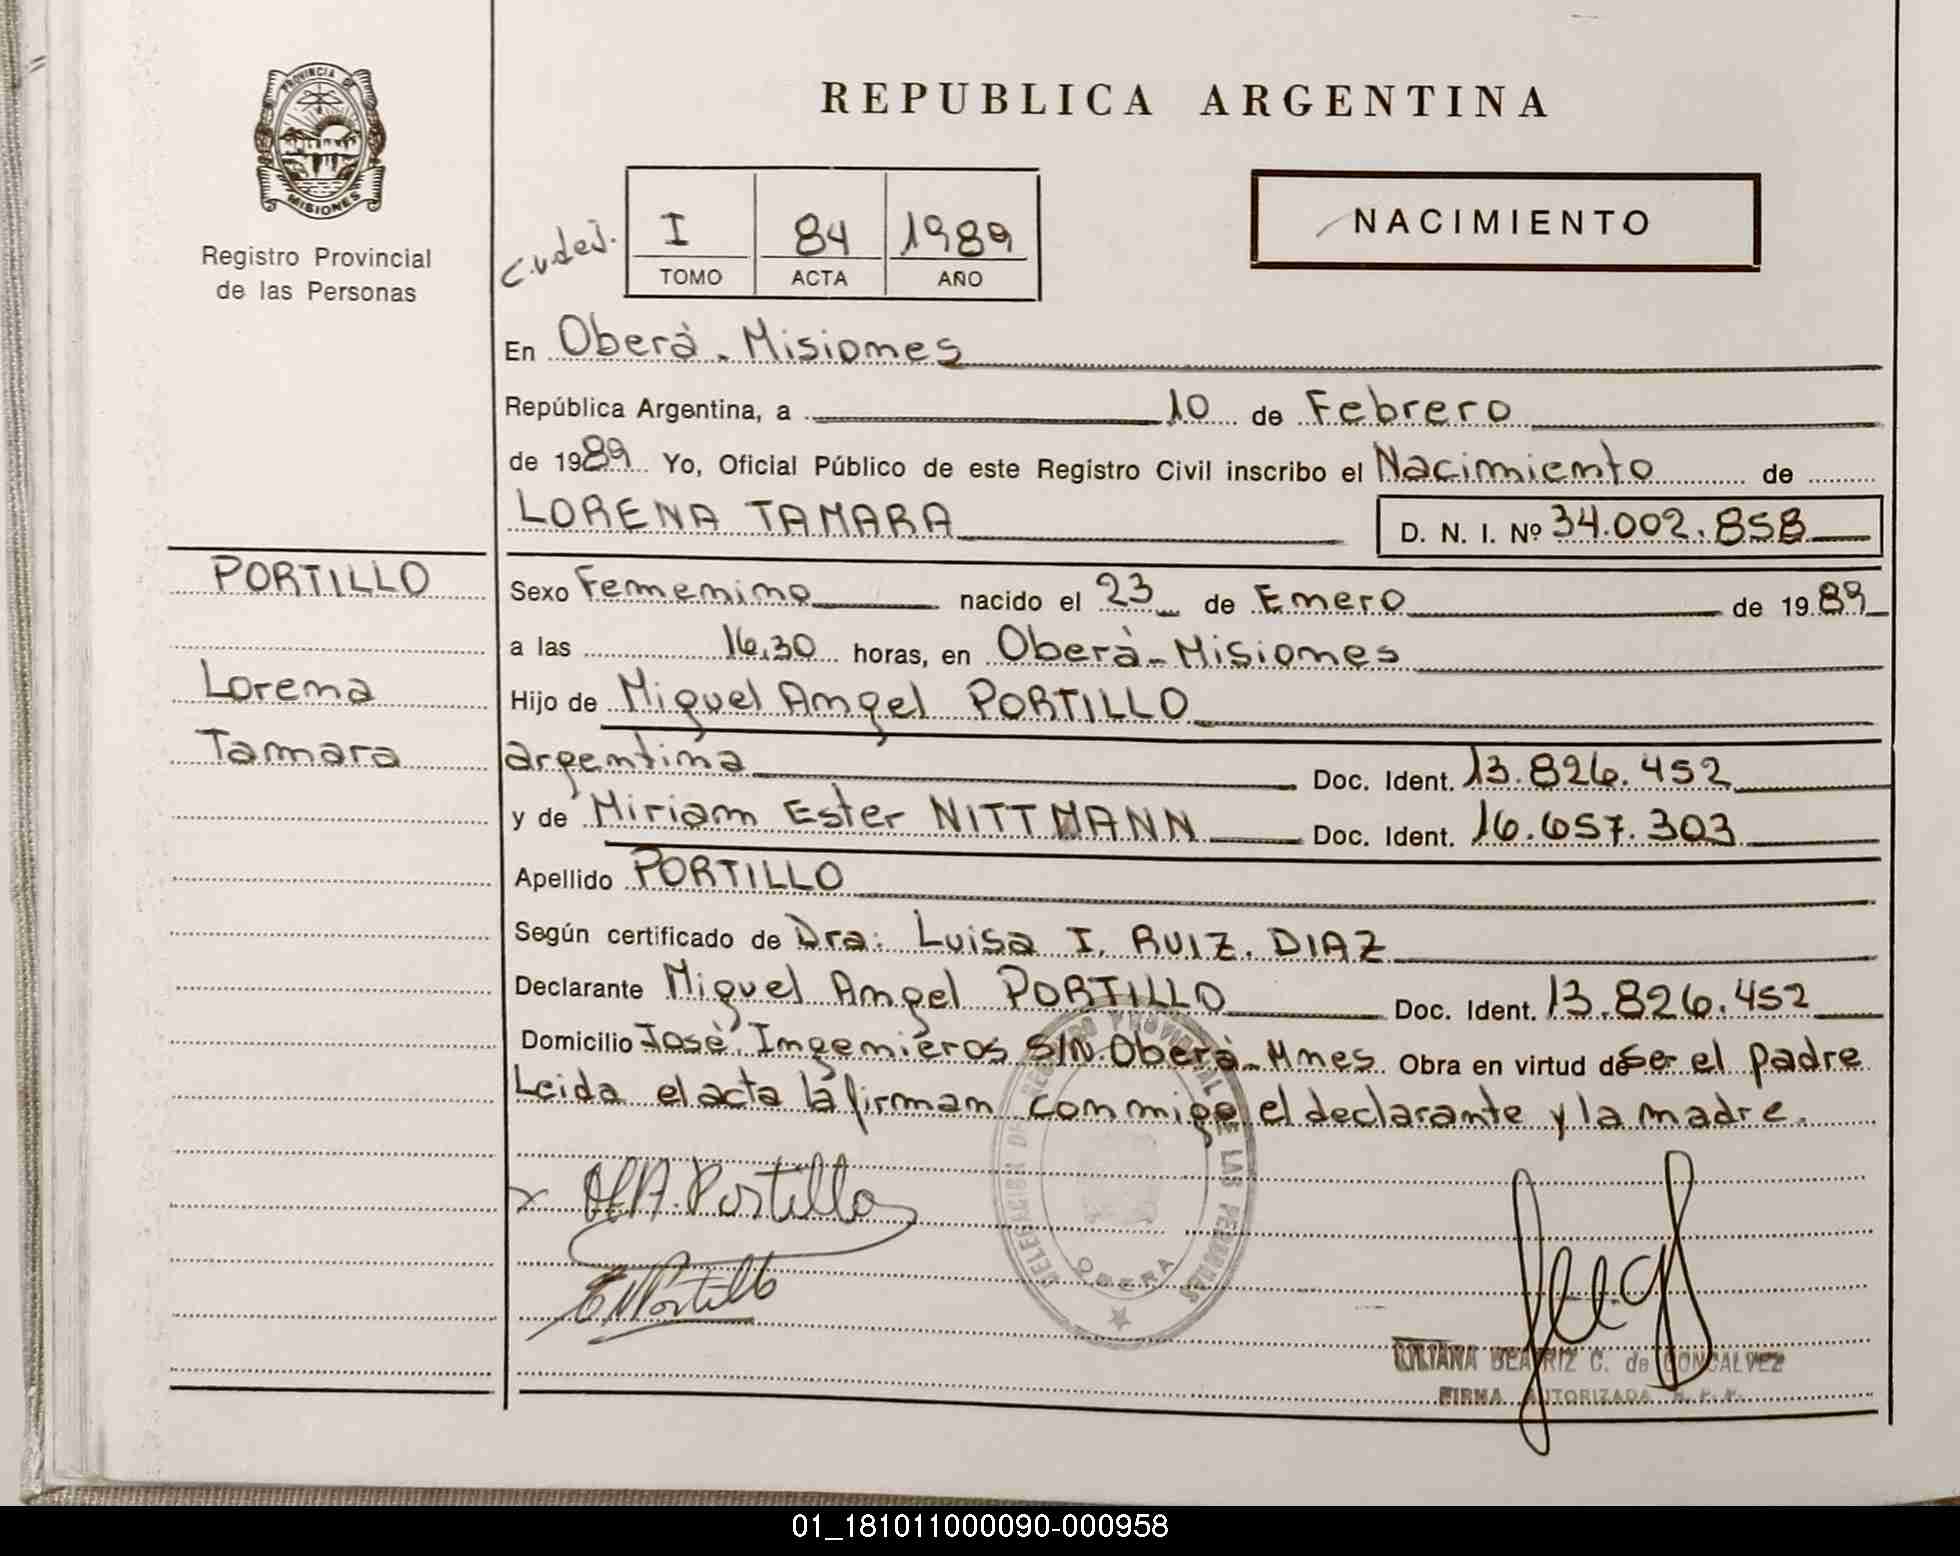 PROVINCIA DE
MISIONES
Registro Provincial
de las Personas
REPUBLICA ARGENTINA
NACIMIENTO
I 84 1989
TOMO ACTA AÑO
En Oberá - Misiones
República Argentina, a 10 de Febrero
de 1989 Yo, Oficial Público de este Registro Civil inscribo el Nacimiento de
LORENA TAMARA D. N. I. Nº 34.002.858
PORTILLO
Lorena
Tamara
Sexo Femenino nacido el 23 de Enero de 1989
a las 16,30 horas, en Oberá - Misiones
Hijo de Miguel Angel PORTILLO
argentina Doc. Ident. 13.826.452
y de Miriam Ester NITTMANN Doc. Ident. 16.657.303
Apellido PORTILLO
Según certificado de Dra: Luisa I. RUIZ. DIAZ
Declarante Miguel Angel PORTILLO Doc. Ident. 13.826.452
Domicilio José Ingenieros S/N. Oberá - Mnes. Obra en virtud de Ser el padre
Leida el acta la firman conmigo el declarante y la madre.
DELEGACION DEL REGISTRO PROVINCIAL DE LAS PERSONAS
OBERA
M.A. Portillo
E N Portillo
LILIANA BEATRIZ C. de GONCALVEZ
FIRMA AUTORIZADA R. P. P.
01_181011000090-000958